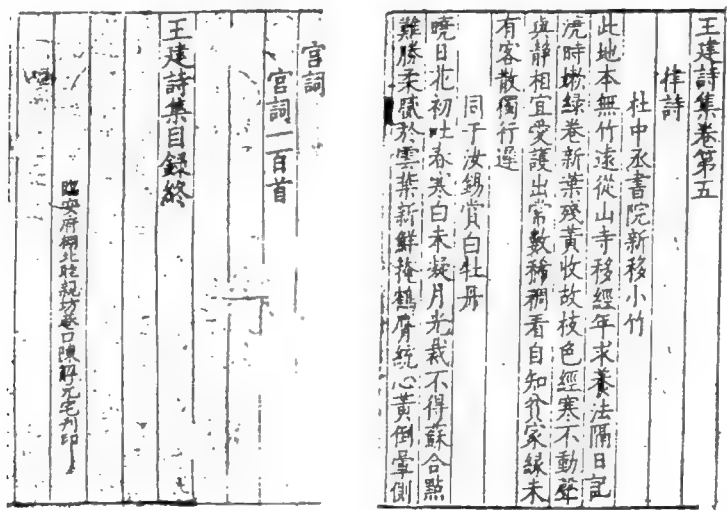 王建詩集卷第五
律詩
杜中丞書院新移小竹
此地本無竹遠從山寺移經年求養法隔日記
澆時嫩緑卷新葉殘黃收故枝色經寒不動聲
與靜相宜愛護出常數稀稠看自知貧家緣未
有客散獨行遲
同于汝錫賞白牡丹
曉日花初吐春寒白未凝月光裁不得蘇合點
難勝柔膩於雲葉新鮮掩鶴膺統心黃倒暈側
宮詞
宮詞一百首
王建詩集目録終
臨安府棚北睦親坊巷口陳解元宅刊印